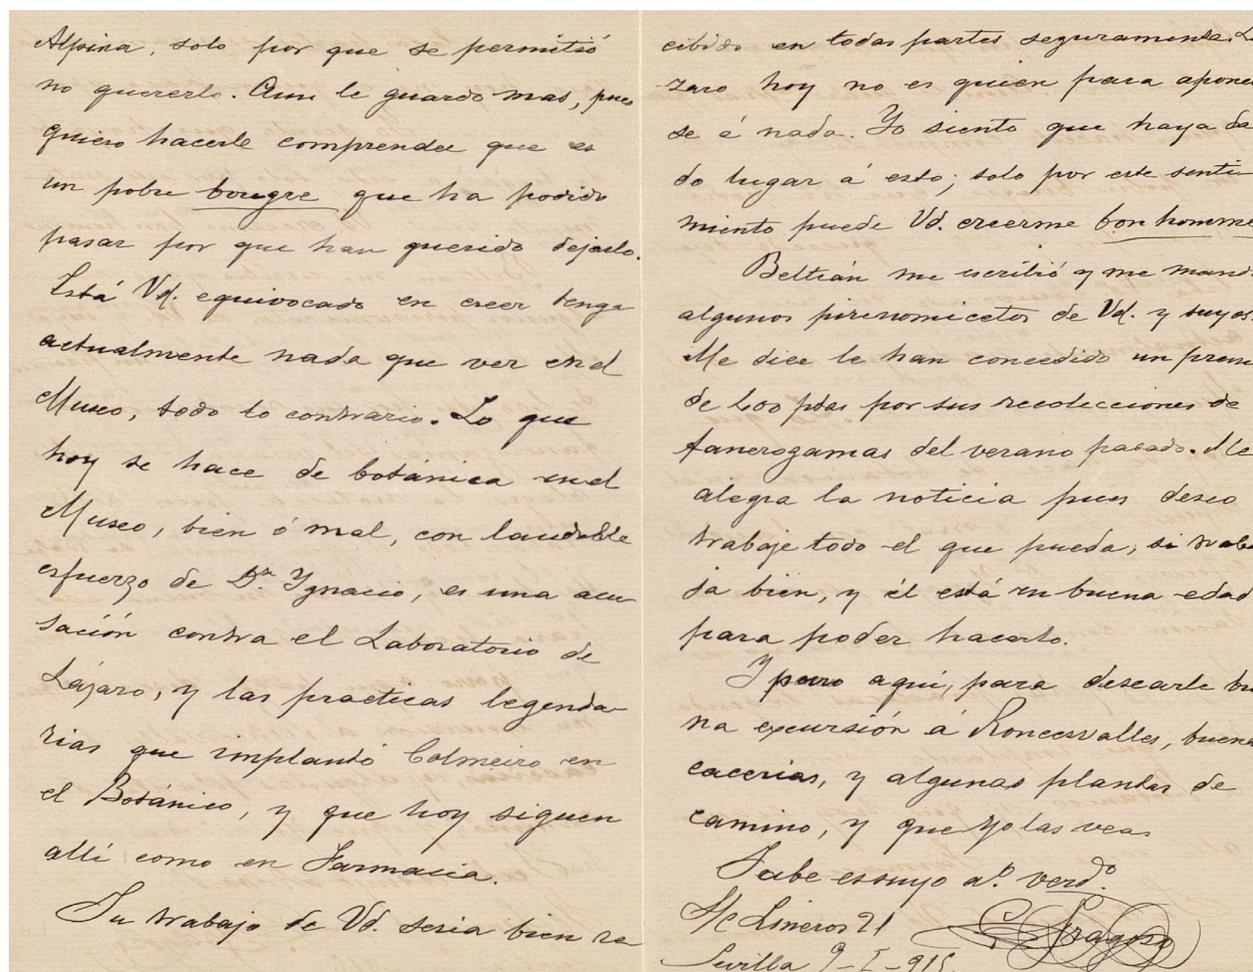 Alpina, solo por que se permitió
no quererlo. Aun le guardo mas, pues
quiero hacerle comprender que es
un pobre bougre que ha podido
pasar por que han querido dejarlo.
Está Vd. equivocado en creer tenga
actualmente nada que ver en el
Museo, todo lo contrario. Lo que
hoy se hace de botánica en el
Museo, bien ó mal, con laudable
esfuerzo de Dn. Ygnacio, es una acu
sación contra el Laboratorio de
Lázaro, y las practicas legenda
rias que implantó Colmeiro en
el Botánico, y que hoy siguen
allí como en Farmacia.
Su trabajo de Vd. seria bien re
cibido en todas partes seguramente. Lá
zaro hoy no es quien para opone
se á nada. Yo siento que haya da
do lugar á esto; solo por este senti
miento puede Vd. creerme bon homme
Beltrán me escribió y me mandó
algunos pirenomicetos de Vd. y suyos.
Me dice le han concedido un premi
de 600 ptas por sus recolecciones de
fanerogamas del verano pasado. Me
alegra la noticia pues deseo
trabaje todo el que pueda; si traba
ja bien, y él está en buena edad
para poder hacerlo.
Y paro aqui, para desearle bue
na excursión á Roncesvalles, buenas
cacerias, y algunas plantas de
camino, y que yo las vea.
Sabe es suyo aº. verdº.
S/c Lineros 21 G. Fragoso
Sevilla 9-I-915.